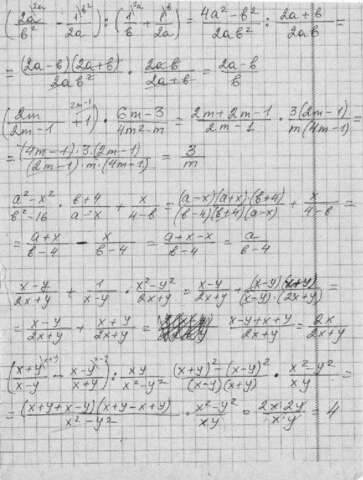 (2a/b² - 1/2a) : (1/b + 1/2a) = (4a²-b²)/2ab² : (2a+b)/2ab =
= (2a-b)(2a+b)/2ab² · 2ab/(2a+b) = (2a-b)/b
(2m/(2m-1) + 1) · (6m-3)/(4m²-m) = (2m+2m-1)/(2m-1) · 3(2m-1)/m(4m-1) =
= (4m-1)·3·(2m-1)/(2m-1)·m·(4m-1) = 3/m
(a²-x²)/(b²-16) · (b+4)/(a-x) + x/(4-b) = (a-x)(a+x)·(b+4)/(b-4)(b+4)(a-x) + x/(4-b) =
= (a+x)/(b-4) - x/(b-4) = (a+x-x)/(b-4) = a/(b-4)
(x-y)/(2x+y) + 1/(x-y) · (x²-y²)/(2x+y) = (x-y)/(2x+y) + (x-y)(x+y)/(x-y)·(2x+y) =
= (x-y)/(2x+y) + (x+y)/(2x+y) = (x-y+x+y)/(2x+y) = 2x/(2x+y)
((x+y)/(x-y) - (x-y)/(x+y)) : xy/(x²-y²) = ((x+y)²-(x-y)²)/(x-y)(x+y) · (x²-y²)/xy =
= (x+y+x-y)(x+y-x+y)/(x²-y²) · (x²-y²)/xy = 2x·2y/x·y = 4